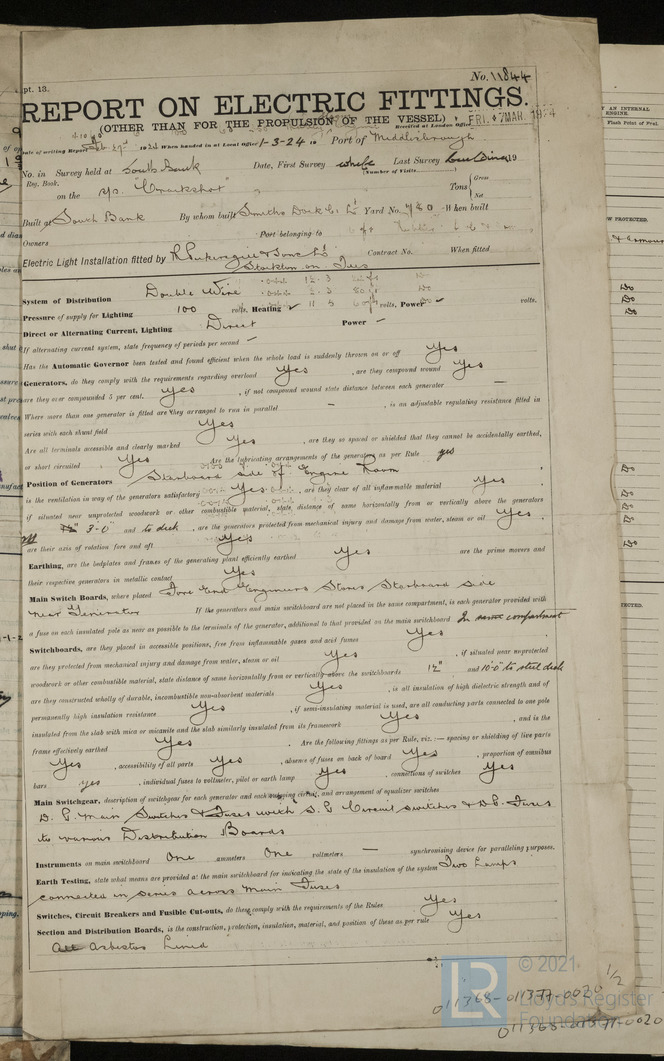 pt. 13.
No. 11844
REPORT ON ELECTRIC FITTINGS.
(OTHER THAN FOR THE PROPULSION OF THE VESSEL)
Received at London Office FRI. 7 MAR. 1924
Date of writing Report 19 When handed in at Local Office 1-3-24 Port of Middlesbrough
No. in Survey held at South Bank Date, First Survey while Last Survey building 19
Reg. Book. (Number of Visits
on the s/s. "Crackshot" Tons { Gross Net
Built at South Bank By whom built Smiths Dock Co Ld Yard No. 780 When built
Owners Port belonging to
Electric Light Installation fitted by & Sons Ld Contract No. When fitted
Stockton on Tees
System of Distribution Double Wire
Pressure of supply for Lighting 100 volts, Heating volts, Power volts.
Direct or Alternating Current, Lighting Direct Power –
If alternating current system, state frequency of periods per second –
Has the Automatic Governor been tested and found efficient when the whole load is suddenly thrown on or off Yes
Generators, do they comply with the requirements regarding overload Yes , are they compound wound Yes
are they over compounded 5 per cent. Yes , if not compound wound state distance between each generator —
Where more than one generator is fitted are they arranged to run in parallel – , is an adjustable regulating resistance fitted in
series with each shunt field Yes
Are all terminals accessible and clearly marked Yes , are they so spaced or shielded that they cannot be accidentally earthed,
or short circuited Yes Are the lubricating arrangements of the generators as per Rule yes
Position of Generators Starboard side of Engine Room
is the ventilation in way of the generators satisfactory Yes , are they clear of all inflammable material Yes
if situated near unprotected woodwork or other combustible material, state distance of same horizontally from or vertically above the generators
3'-0" and to deck , are the generators protected from mechanical injury and damage from water, steam or oil Yes
are their axis of rotation fore and aft Yes
Earthing, are the bedplates and frames of the generating plant efficiently earthed Yes are the prime movers and
their respective generators in metallic contact Yes
Main Switch Boards, where placed Fore End Engineers Stores Starboard side
near Generator If the generators and main switchboard are not placed in the same compartment, is each generator provided with
a fuse on each insulated pole as near as possible to the terminals of the generator, additional to that provided on the main switchboard In same compartment
Switchboards, are they placed in accessible positions, free from inflammable gases and acid fumes Yes
are they protected from mechanical injury and damage from water, steam or oil Yes , if situated near unprotected
woodwork or other combustible material, state distance of same horizontally from or vertically above the switchboards 12" and 10'-0" to steel deck
are they constructed wholly of durable, incombustible non-absorbent materials Yes , is all insulation of high dielectric strength and of
permanently high insulation resistance Yes , if semi-insulating material is used, are all conducting parts connected to one pole
insulated from the slab with mica or micanite and the slab similarly insulated from its framework Yes , and is the
frame effectively earthed Yes . Are the following fittings as per Rule, viz.:— spacing or shielding of live parts
Yes , accessibility of all parts Yes , absence of fuses on back of board Yes , proportion of omnibus
bars yes , individual fuses to voltmeter, pilot or earth lamp Yes , connections of switches Yes
Main Switchgear, description of switchgear for each generator and each outgoing circuit, and arrangement of equalizer switches
D.P. Main Switches & Fuses with S.P. Circuit switches & D.P. Fuses
to various Distribution Boards
Instruments on main switchboard One ammeters One voltmeters — synchronising device for paralleling purposes.
Earth Testing, state what means are provided at the main switchboard for indicating the state of the insulation of the system Two Lamps
connected in series across Main Fuses
Switches, Circuit Breakers and Fusible Cut-outs, do these comply with the requirements of the Rules Yes
Section and Distribution Boards, is the construction, protection, insulation, material, and position of these as per rule Yes
All Asbestos Lined
LR
© 2021
Lloyd's Register
Foundation
011368-011377-0020 1/2
011368-011377-0020